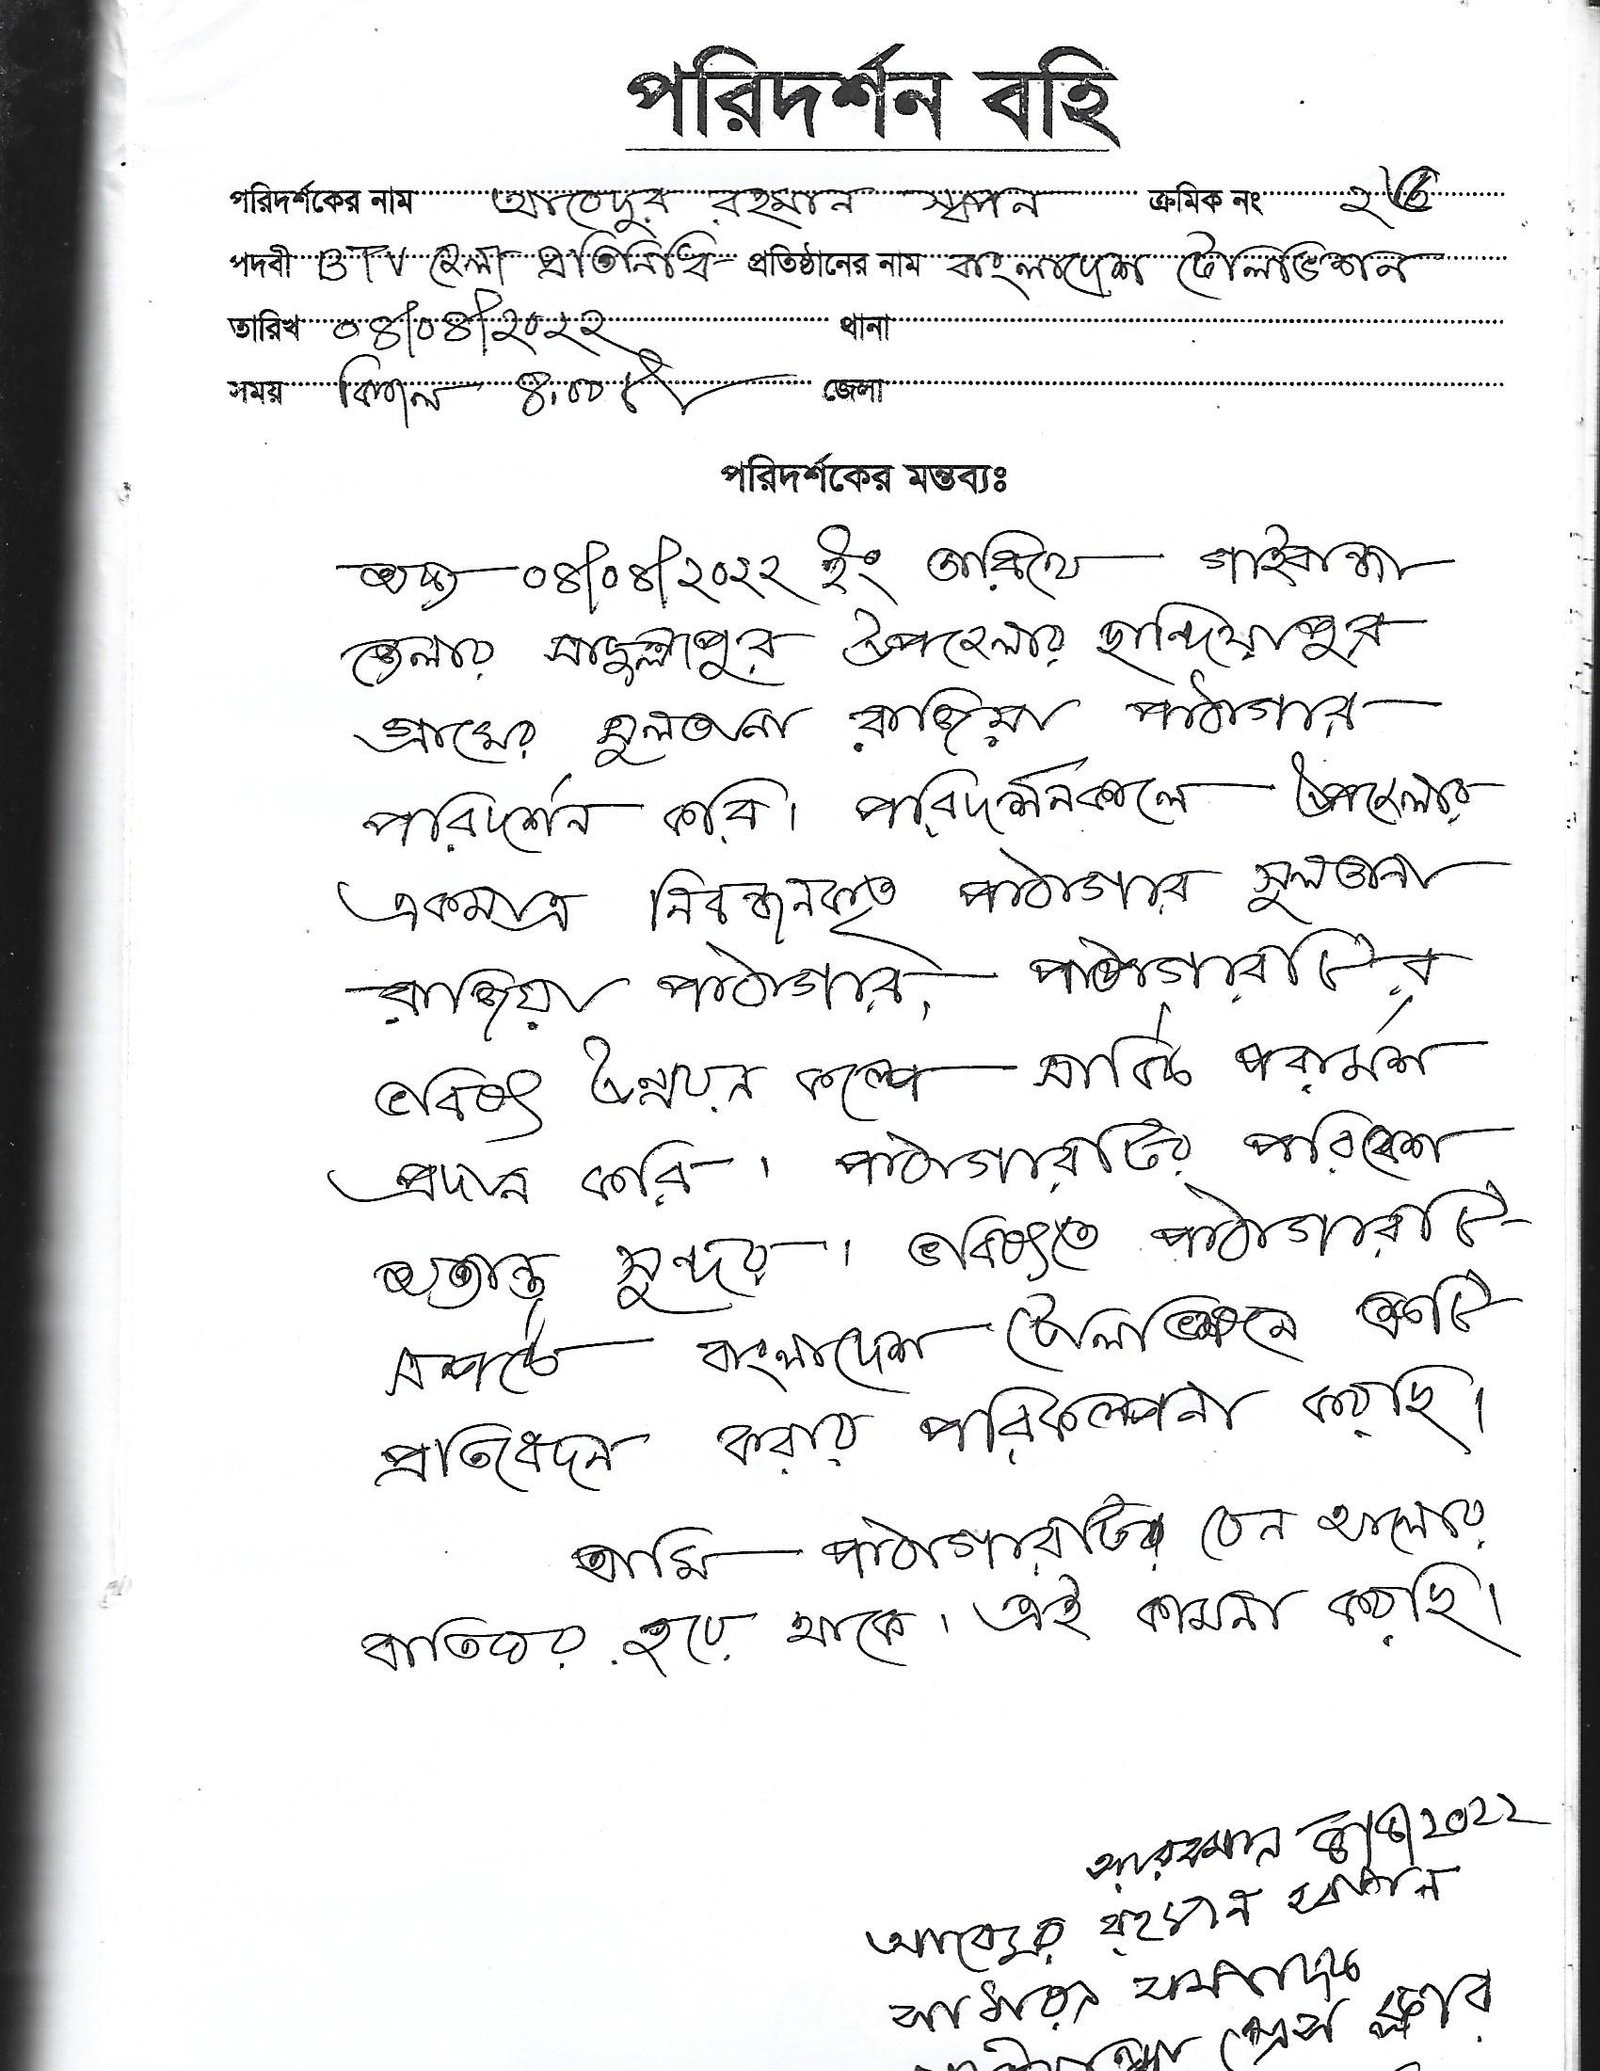 পরিদর্শন বহি
পরিদর্শকের নাম আবেদুর রহমান স্বপন ক্রমিক নং
পদবী BTV জেলা প্রতিনিধি প্রতিষ্ঠানের নাম বাংলাদেশ টেলিভিশন
তারিখ ০৪/০৪/২০২২ থানা
সময় বিকাল ৪.০০ জেলা
পরিদর্শকের মন্তব্যঃ
অদ্য ০৪/০৪/২০২২ ইং তারিখে গাইবান্ধা
জেলার সাদুল্লাপুর উপজেলার ছান্দিয়াপুর
গ্রামের সুলতানা রাজিয়া পাঠাগার
পরিদর্শন করি। পরিদর্শনকালে উপজেলার
একমাত্র নিবন্ধনকৃত পাঠাগার সুলতানা
রাজিয়া পাঠাগার, পাঠাগারটির
ভবিষ্যৎ উন্নয়ন কল্পে সার্বিক পরামর্শ
প্রদান করি। পাঠাগারটির পরিবেশ
অত্যান্ত সুন্দর। ভবিষ্যৎতে পাঠাগারটি
সম্পর্কে বাংলাদেশ টেলিভিশনে একটি
প্রতিবেদন করার পরিকল্পনা করছি।
আমি পাঠাগারটির যেন আলোর
বাতিঘর হয়ে থাকে। এই কামনা করছি।
২০২২
আবেদুর রহমান স্বপন
সাধারন সম্পাদক
প্রেস ক্লাব